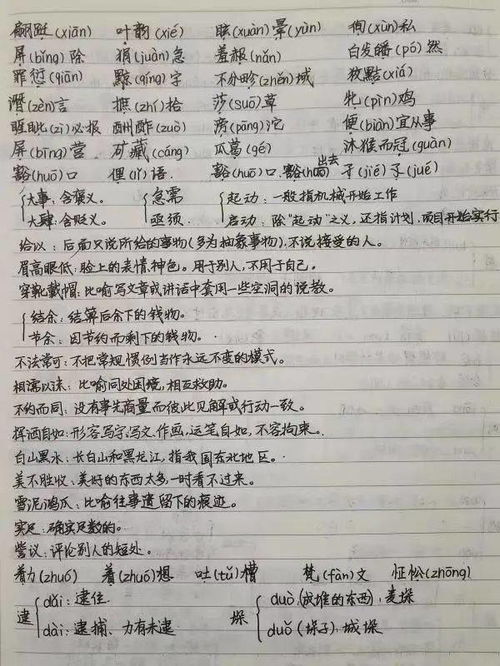 翩跹(xiān) 叶韵(xié) 眩(xuàn)晕(yùn) 徇(xùn)私
屏(bǐng)除 狷(juàn)急 羞赧(nǎn) 白发皤(pó)然
罪愆(qiān) 黥(qíng)字 不分畛(zhěn)域 狡黠(xiá)
谮(zèn)言 摭(zhí)拾 莎(suō)草 牝(pìn)鸡
睚眦(zì)必报 酬酢(zuò) 滂(pāng)沱 便(biàn)宜从事
屏(bǐng)营 矿藏(cáng) 瓜葛(gé) 沐猴而冠(guàn)
豁(huō)口 俚(lǐ)语 豁(huō)口、豁(huō)出去 孑(jié)孓(jué)
大事:含褒义。 急需 起动:一般指机械开始工作
大肆:含贬义。 亟须 启动:除"起动"之义,还指计划、项目开始实行
给以:后面只说所给的事物(多为抽象事物),不说接受的人。
眉高眼低:脸上的表情、神色。用于别人,不用于自己。
穿靴戴帽:比喻写文章或讲话中套用一些空洞的说教。
结余:结算后余下的钱物。
节余:因节约而剩下的钱物。
不法常可:不把常规惯例当作永远不变的模式。
相濡以沫:比喻同处困境,相互救助。
不约而同:没有事先商量而彼此见解或行动一致。
挥洒自如:形容写字、写文、作画,运笔自如,不容拘束。
白山黑水:长白山和黑龙江,指我国东北地区。
美不胜收:美好的东西太多,一时看不过来。
雪泥鸿爪:比喻往事遗留下的痕迹。
实足:确实足数的。
訾议:评论别人的短处。
着力(zhuó) 着(zhuó)想 吐(tǔ)槽 梵(fàn)文 怔忪(zhōng)
逮 dǎi:逮住 垛 duò(成堆的东西):麦垛
dài:逮捕、力有未逮 duǒ(垛子):城垛